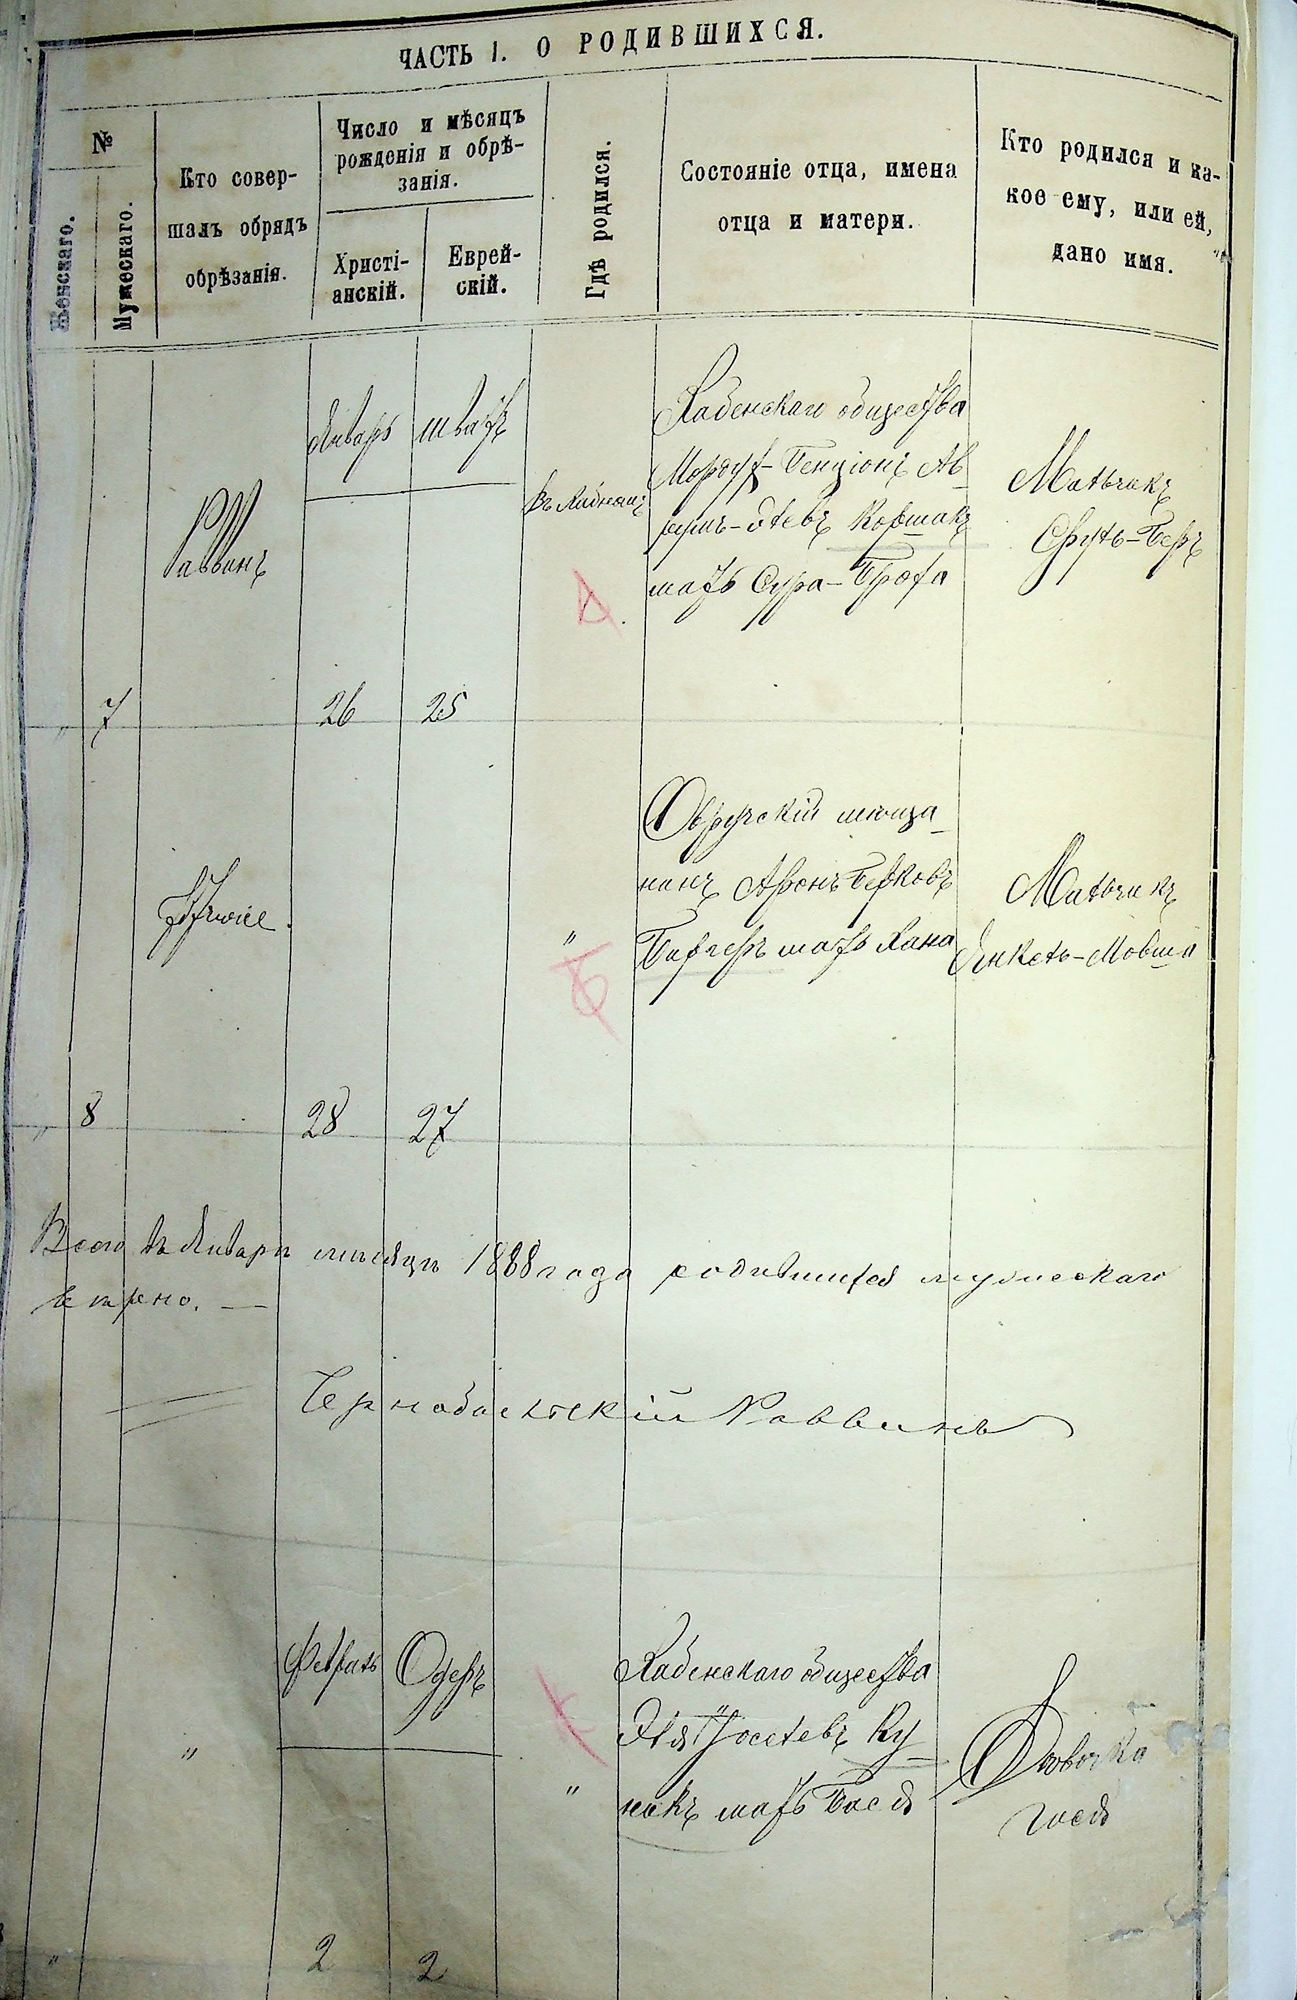 ЧАСТЬ I. О РОДИВШИХСЯ.
№
Женскаго.
Мужескаго.
Кто совер-
шалъ обрядъ
обрѣзанія.
Число и мѣсяцъ
рожденія и обрѣ-
занія.
Христі-
анскій.
Еврей-
скій.
Гдѣ родился.
Состояніе отца, имена
отца и матери.
Кто родился и ка-
кое ему, или ей,
дано имя.
Январь
Шватъ
Раввинъ
Хабенскаго общества
Мордух-Бенціонъ Ав-
румъ-Лейбъ Ковшакъ
мать Сура-Броха
Мальчикъ
Сруль-Беръ
„
7
26
25
Овручскій меща-
нинъ Аронъ Берковъ
мать Хана
„
Мальчикъ
Янкель-Мовша
„
8
28
27
Всего въ Январѣ мѣсяцѣ 1888 года родившихся мужескаго
Чернобыльскій Раввинъ
Февраль
Одеръ
Хабенскаго общества
Эля Іоселевъ Ку-
никъ мать Бася
„
„
Дѣвочка
Гися
„
2
2